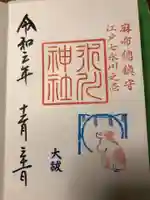 麻布總鎮守
江戸七氷川之一
氷川
神社
大祓
令和三年
十二月三十一日